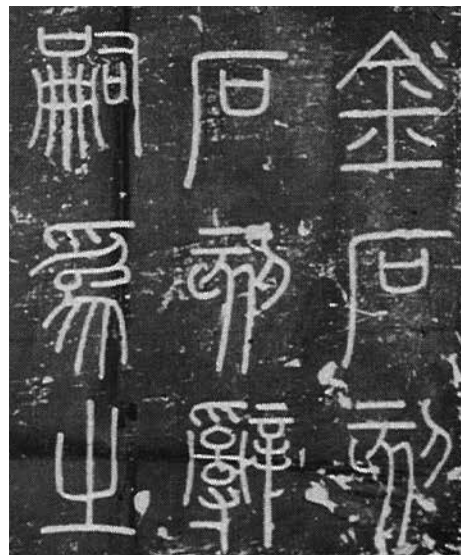 金石刻
石刻辭
嗣爲之